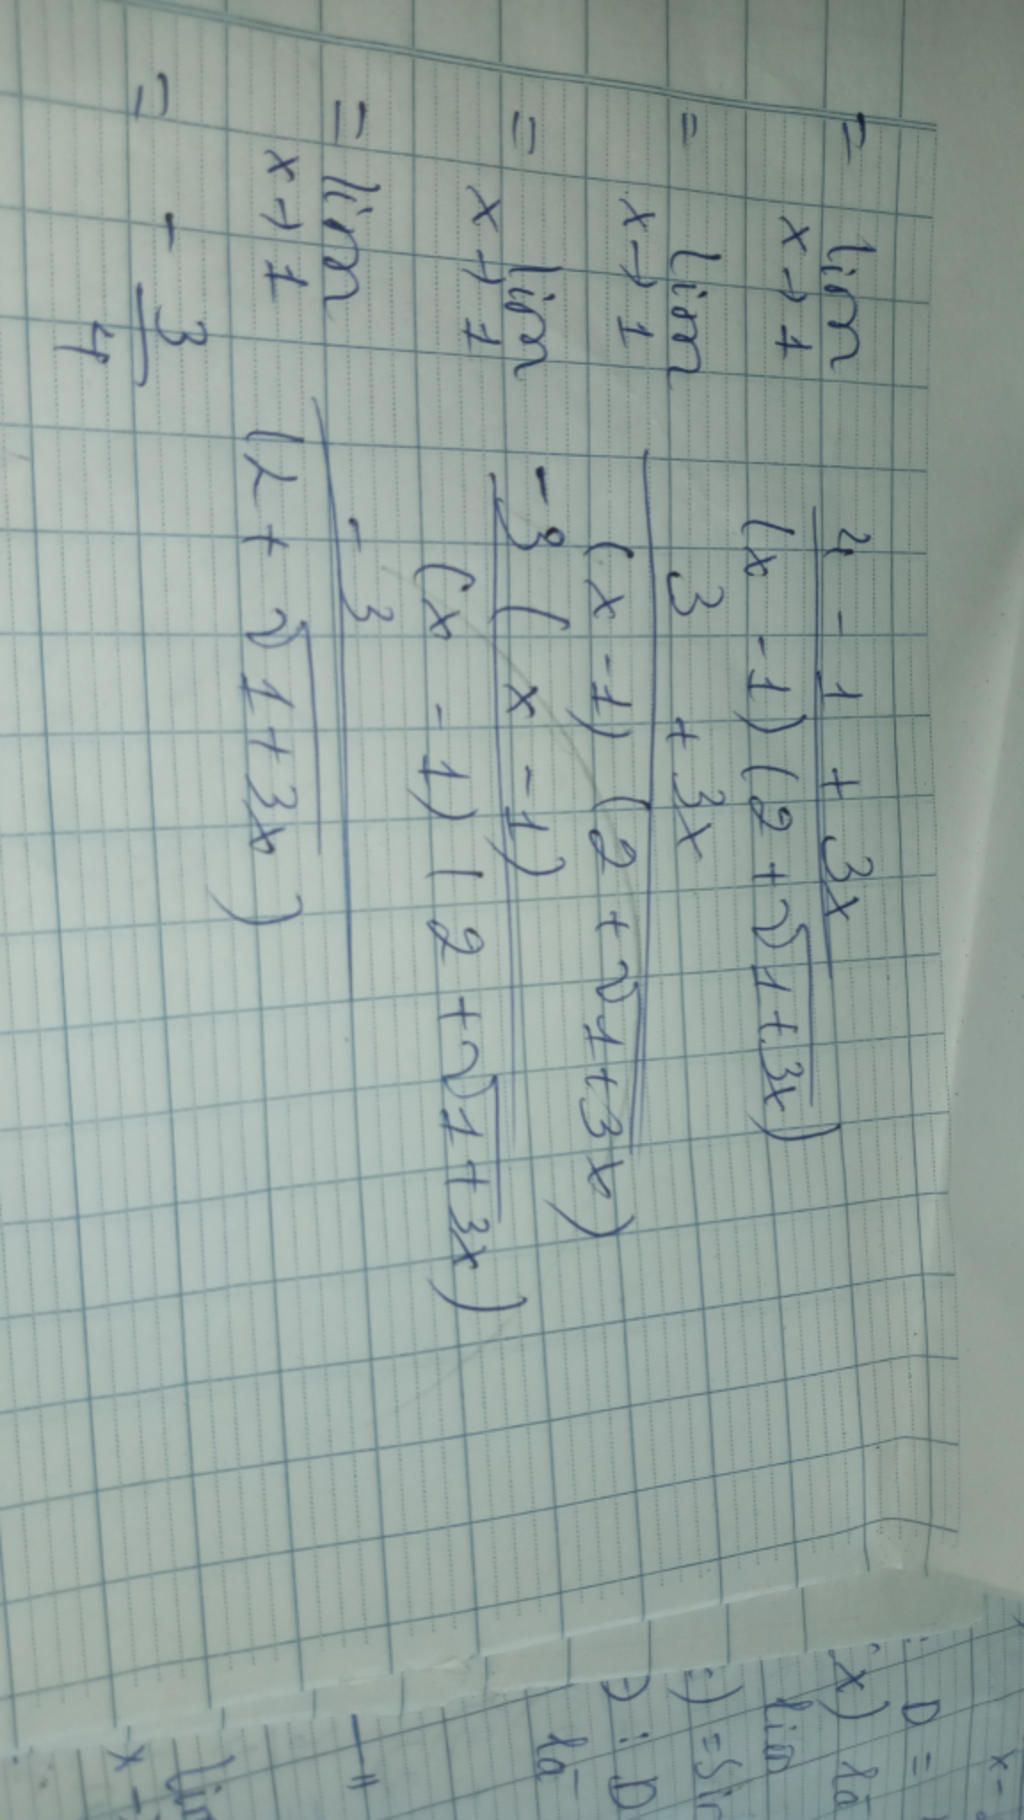 = lim x→1 (4 - 1 + 3x) / ((x - 1)(2 + √(1+3x)))
= lim x→1 (3 + 3x) / ((x - 1)(2 + √(1+3x)))
= lim x→1 (-3(x - 1)) / ((x - 1)(2 + √(1+3x)))
= lim x→1 (-3) / ((2 + √(1+3x)))
= - 3/4
x-
D =
x) là
lim
c) = Sin
: D
là
lim
x→